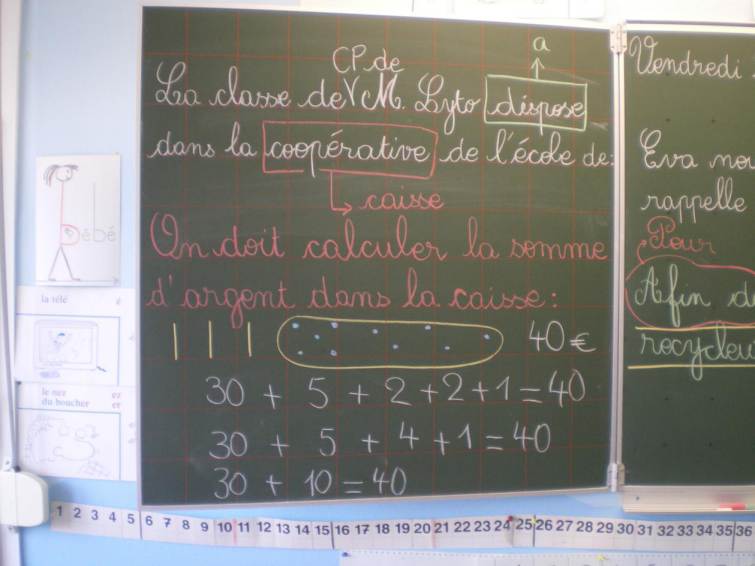 a
CP de
La classe de V M. Lyto dispose
dans la coopérative de l'école de:
caisse
On doit calculer la somme
d'argent dans la caisse:
40 €
30 + 5 + 2 + 2 + 1 = 40
30 + 5 + 4 + 1 = 40
30 + 10 = 40
Vendredi
Eva nou
rappelle
Pour
Afin d
recycleu
b
Bébé
la télé é
le nez ez
du boucher er
1 2 3 4 5 6 7 8 9 10 11 12 13 14 15 16 17 18 19 20 21 22 23 24 25 26 27 28 29 30 31 32 33 34 35 36